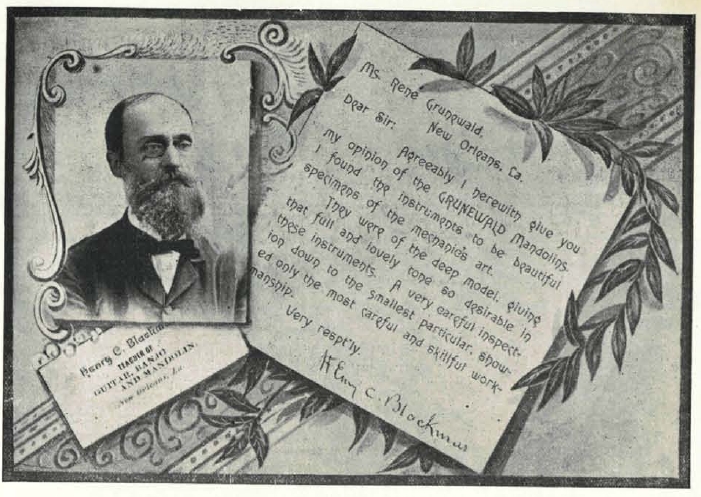 Ms. Rene Grunewald.
New Orleans, La.
Dear Sir:
Agreeably I herewith give you
my opinion of the GRUNEWALD Mandolins.
I found the instruments to be beautiful
specimens of the mechanic's art.
They were of the deep model, giving
that full and lovely tone so desirable in
these instruments. A very careful inspect-
ion down to the smallest particular, show-
ed only the most careful and skillful work-
manship.
Very respt'ly,
Henry C. Blackmar
Henry C. Blackmar
TEACHER OF
GUITAR, BANJO
AND MANDOLIN.
New Orleans, La.